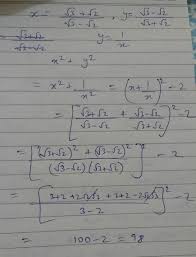 x = √3 + √2 / √3 - √2 , y = √3 - √2 / √3 + √2
= √3+√2 / √3-√2   y = 1/x
x² + y²
= x² + 1/x² = (x + 1/x)² - 2
= [√3+√2 / √3-√2 + √3-√2 / √3+√2]² - 2
[(√3+√2)² + (√3-√2)² / (√3-√2)(√3+√2)]² - 2
[3+2+2√3√2 + 3+2-2√3√2 / 3-2]² - 2
= 100 - 2 = 98